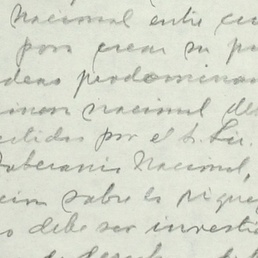 Nacional entre
para crear su
ideas predominan
nacional de
por el S. Lic.
Soberania Nacional,
sobre la rique
o debe ser investi